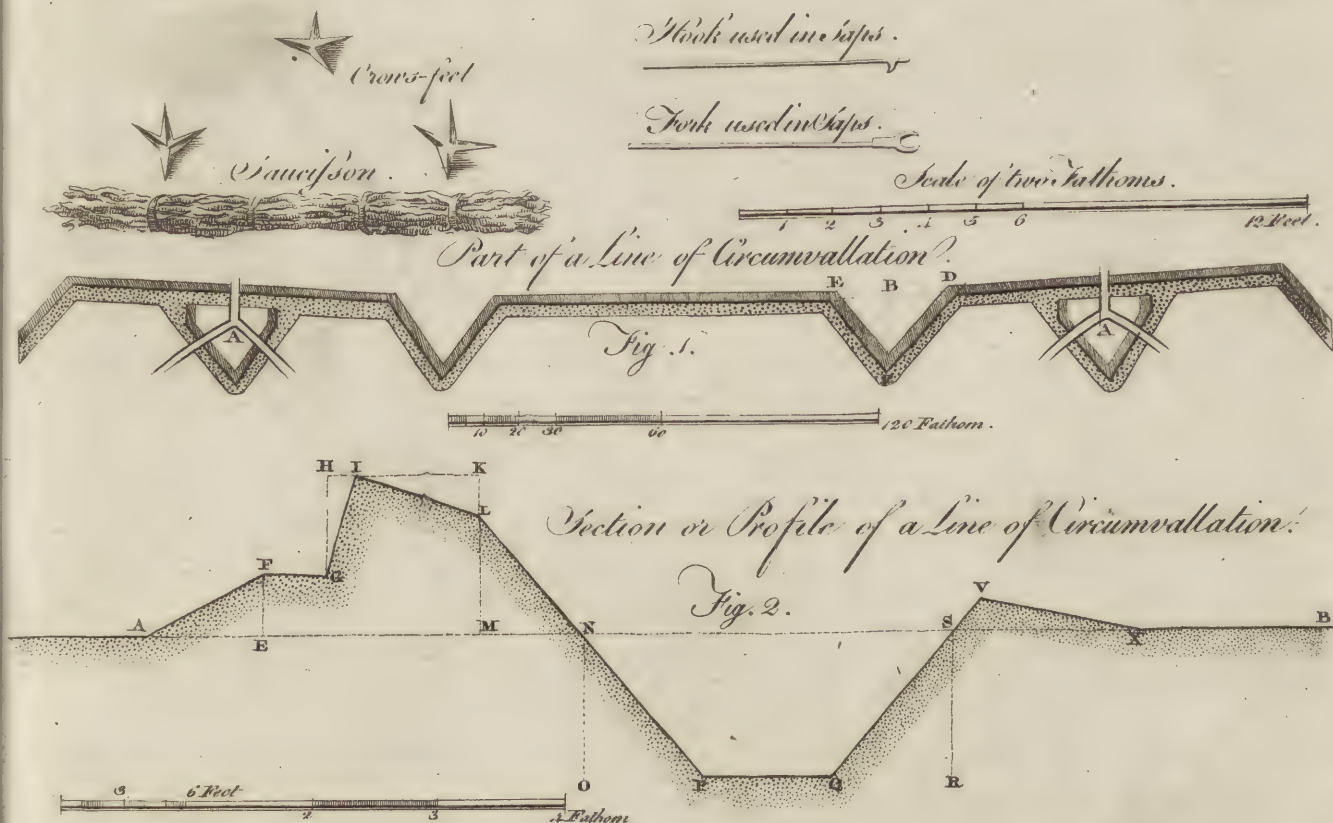 Crows-feet
Hook used in Saps.
Fork used in Saps.
Saucisson.
Scale of two Fathoms.
1 2 3 4 5 6 12 Feet.
Part of a Line of Circumvallation.
E B D
A A
Fig. 1.
10 20 30 60 120 Fathom.
H I K
L
Section or Profile of a Line of Circumvallation.
Fig. 2.
F G V
A E M N S X B
O P Q R
3 6 Feet
2 3 4 Fathom